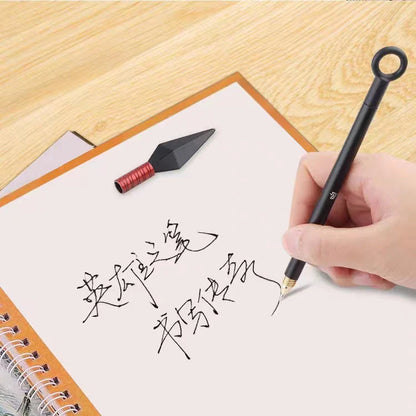 英雄之笔
书写传奇